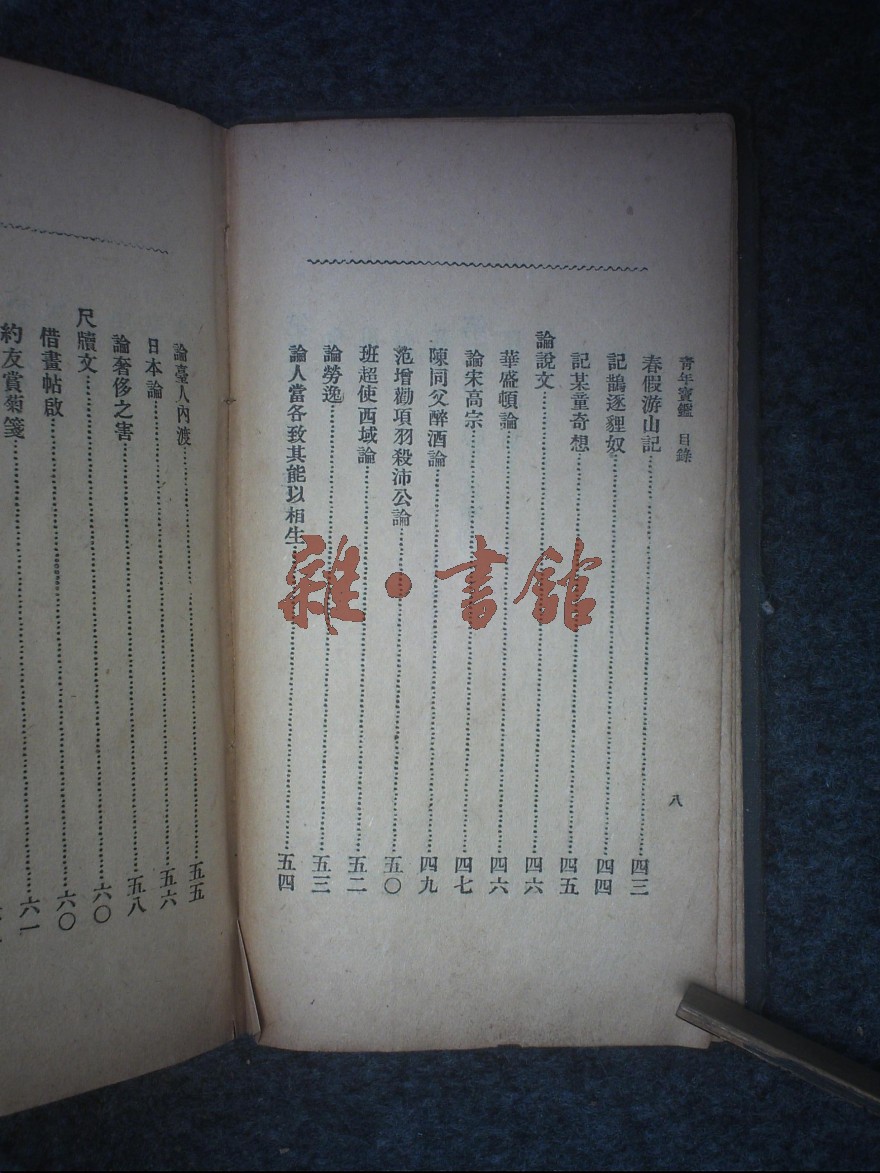 青年寶鑑 目錄
八
春假游山記 四三
記鵲逐貍奴 四四
記某童奇想 四五
論說文 四六
華盛頓論 四六
論宋高宗 四七
陳同父醉酒論 四九
范增勸項羽殺沛公論 五〇
班超使西域論 五二
論勞逸 五三
論人當各致其能以相生 五四
論臺人內渡 五五
日本論 五六
論奢侈之害 五八
尺牘文 六〇
借畫帖啟 六〇
約友賞菊箋 六一
雜·書館